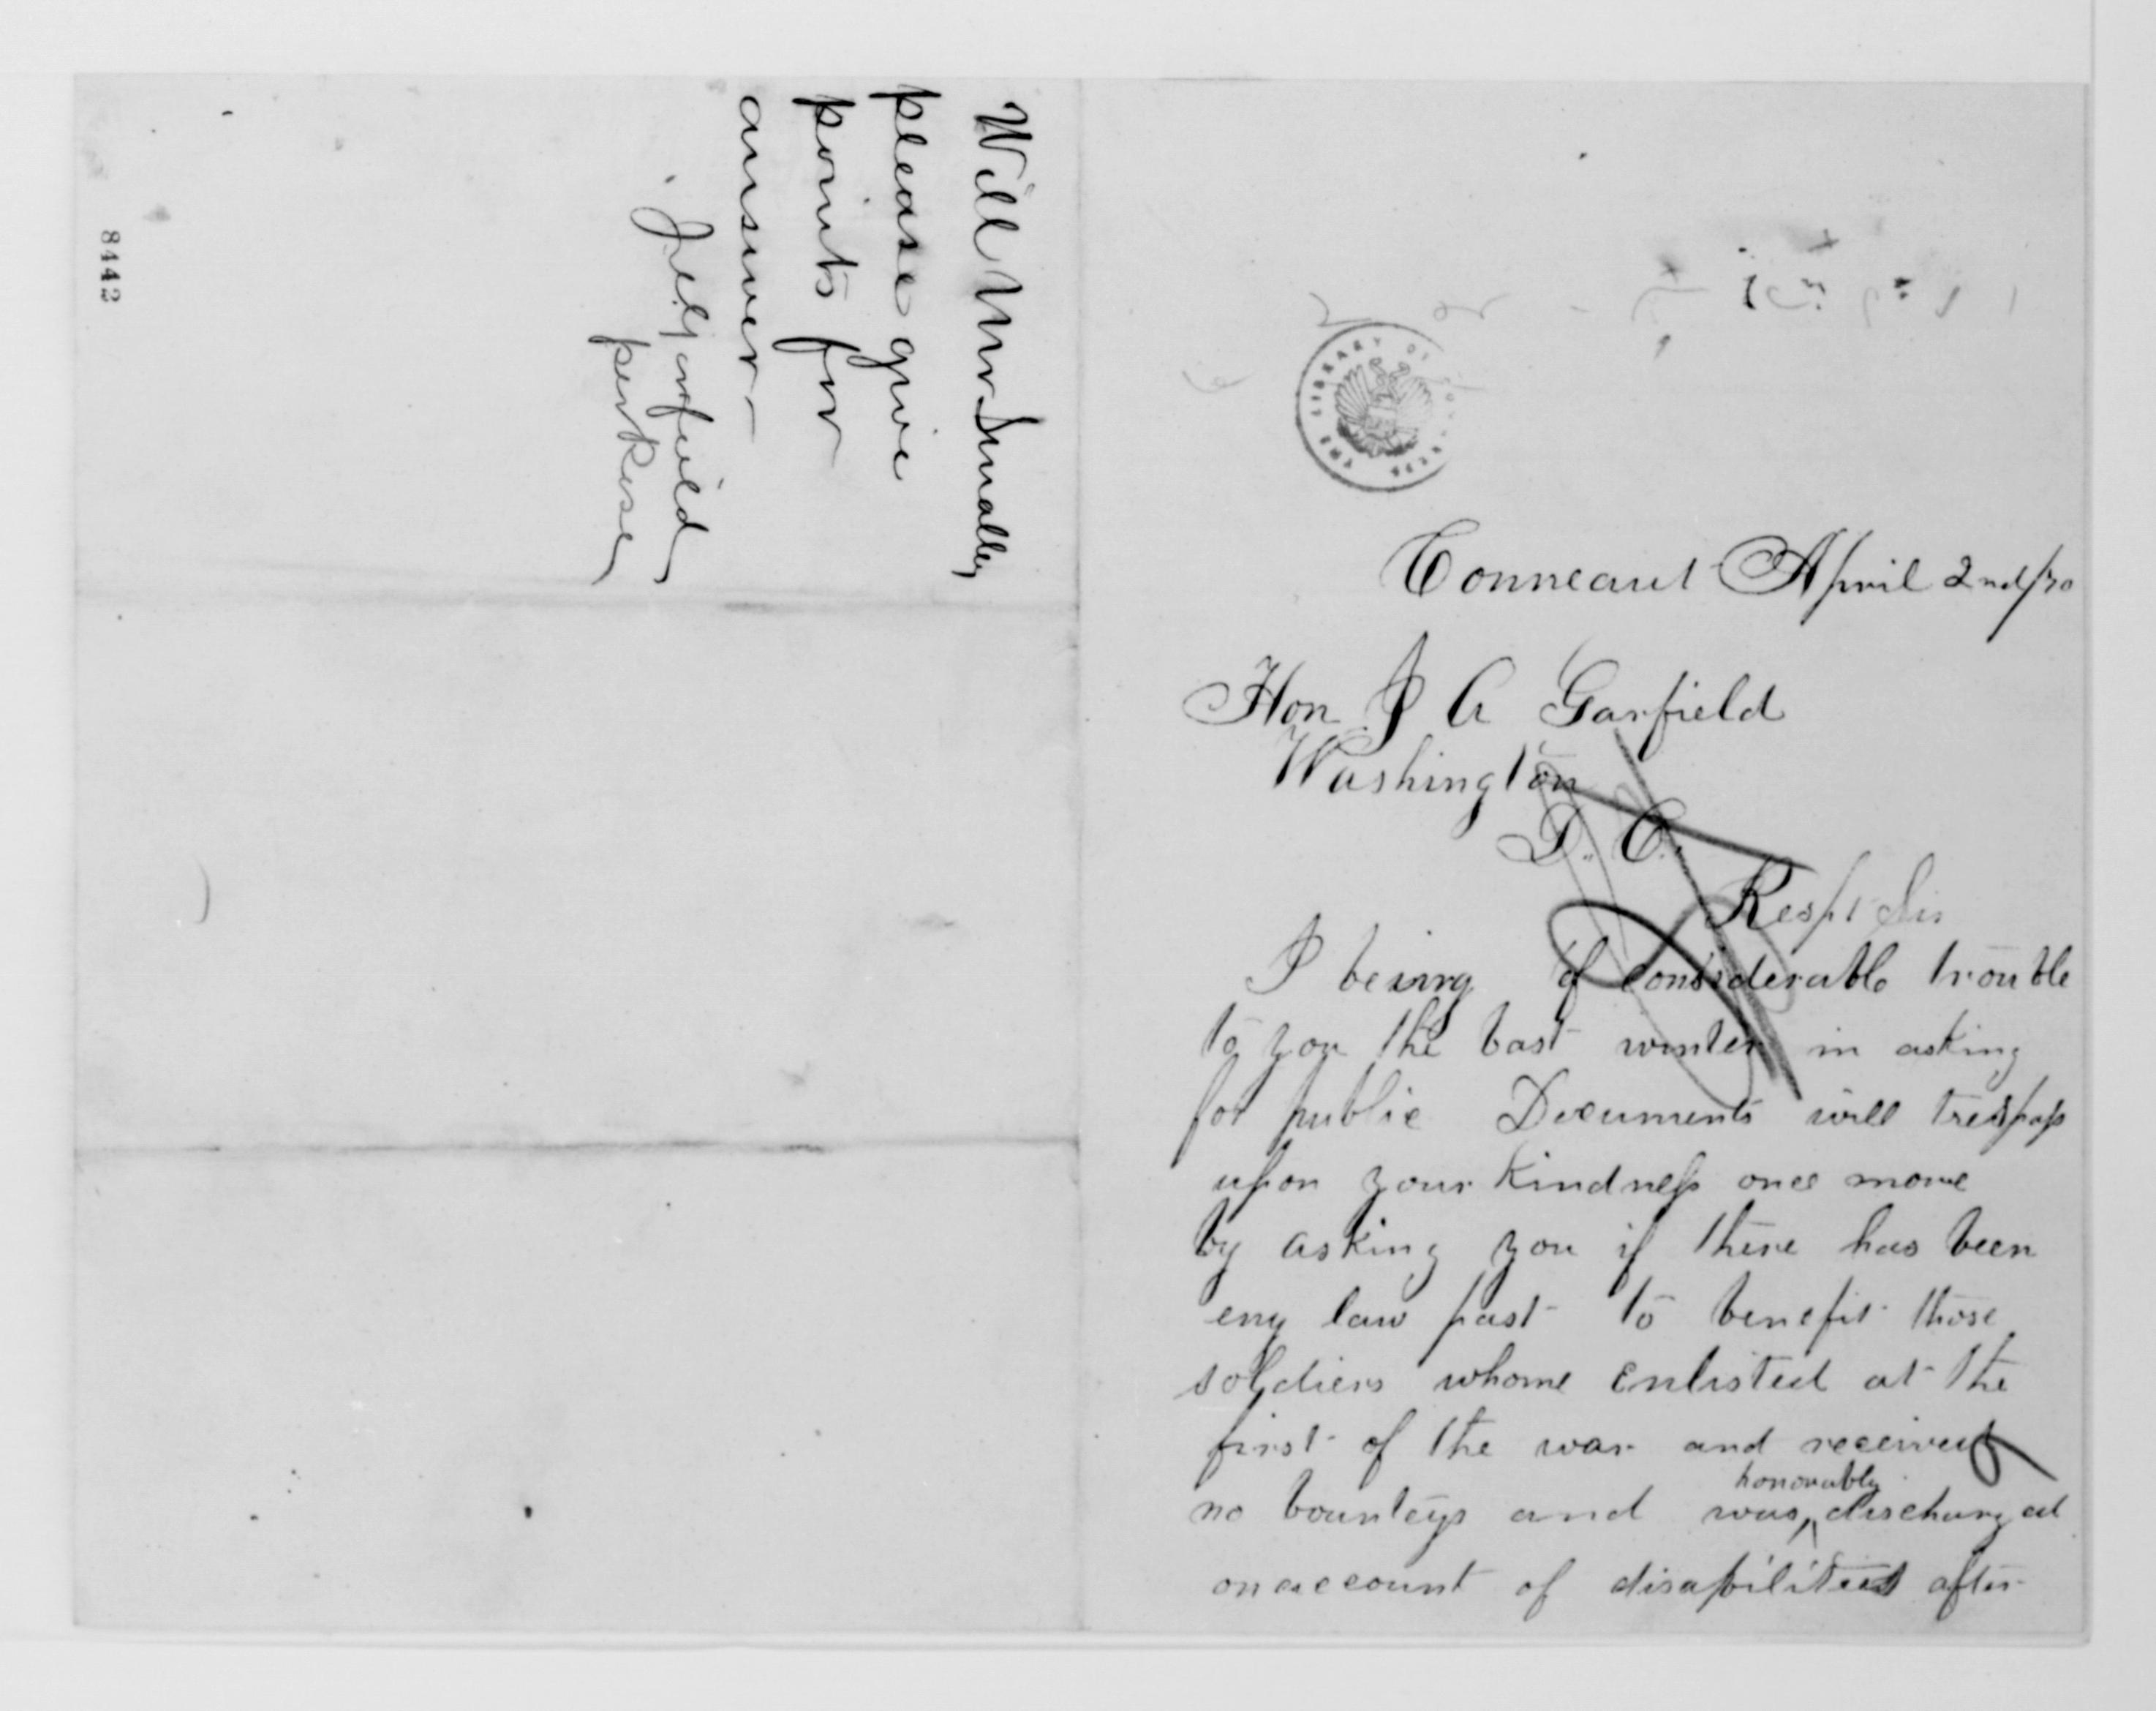 Will Mr Smalley
please give
points for
answer—
J A Garfield
per Rose
8442
THE LIBRARY OF CONGRESS
Conneaut April 2nd/70
Hon J A Garfield
Washington
D. C.
Respt Sir
I being of considerable trouble
to you the bast winter in asking
for public Documents will trespass
upon your kindness once more
by asking you if there has been
eny law past to benefit those
soldiers whome Enlisted at the
first of the war and received
honorably
no bounteys and was discharged
on account of disabilities after